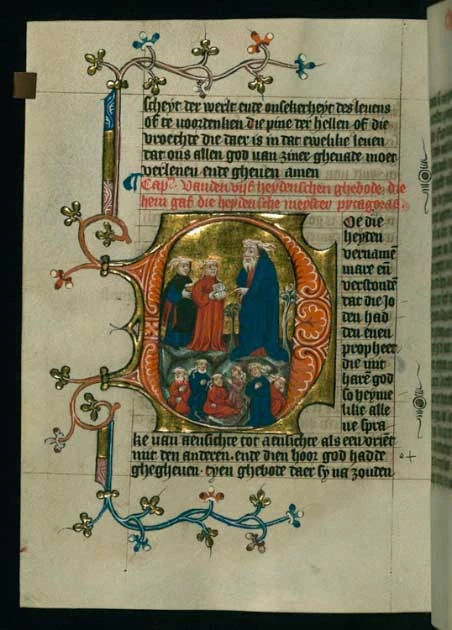 scheyt der werlt ende onsekerheyt des levens
of te voordenken die pine der hellen of die
vroechde die daer is in dat ewelike leven
dat ons allen god van ziner ghenade moet
verlenen ende gheven amen
Cap. vanden vijf heydenschen ghebode die
hem gaf die heydensche meyster pytagoras.
Oe die
heyden
vernamen
mare en
verstonden
dat die Jo
den had
den enen
propheet
die mit
haren god
so heyme
like alle
ne spra
ke van aensichte tot aensichte als een vrient
mit den anderen. ende dien hoor god hadde
ghegheven. tyen ghebode daer sy na zouden